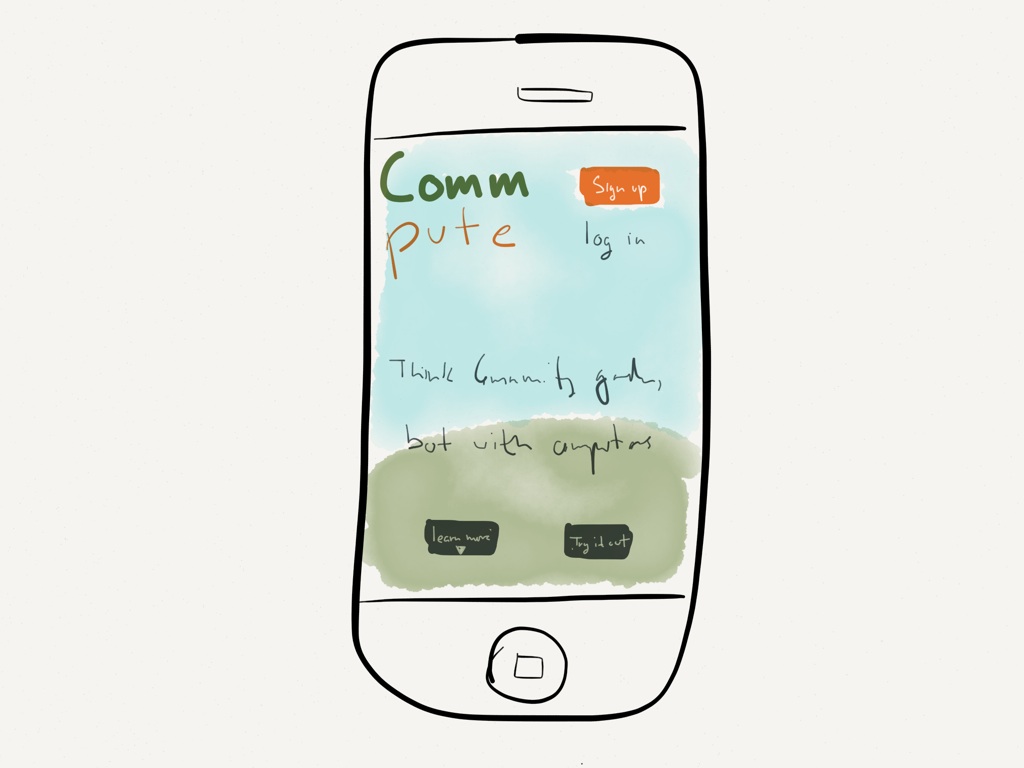 Comm
pute
Sign up
log in
Think Community garden,
but with computers
learn more
Try it out